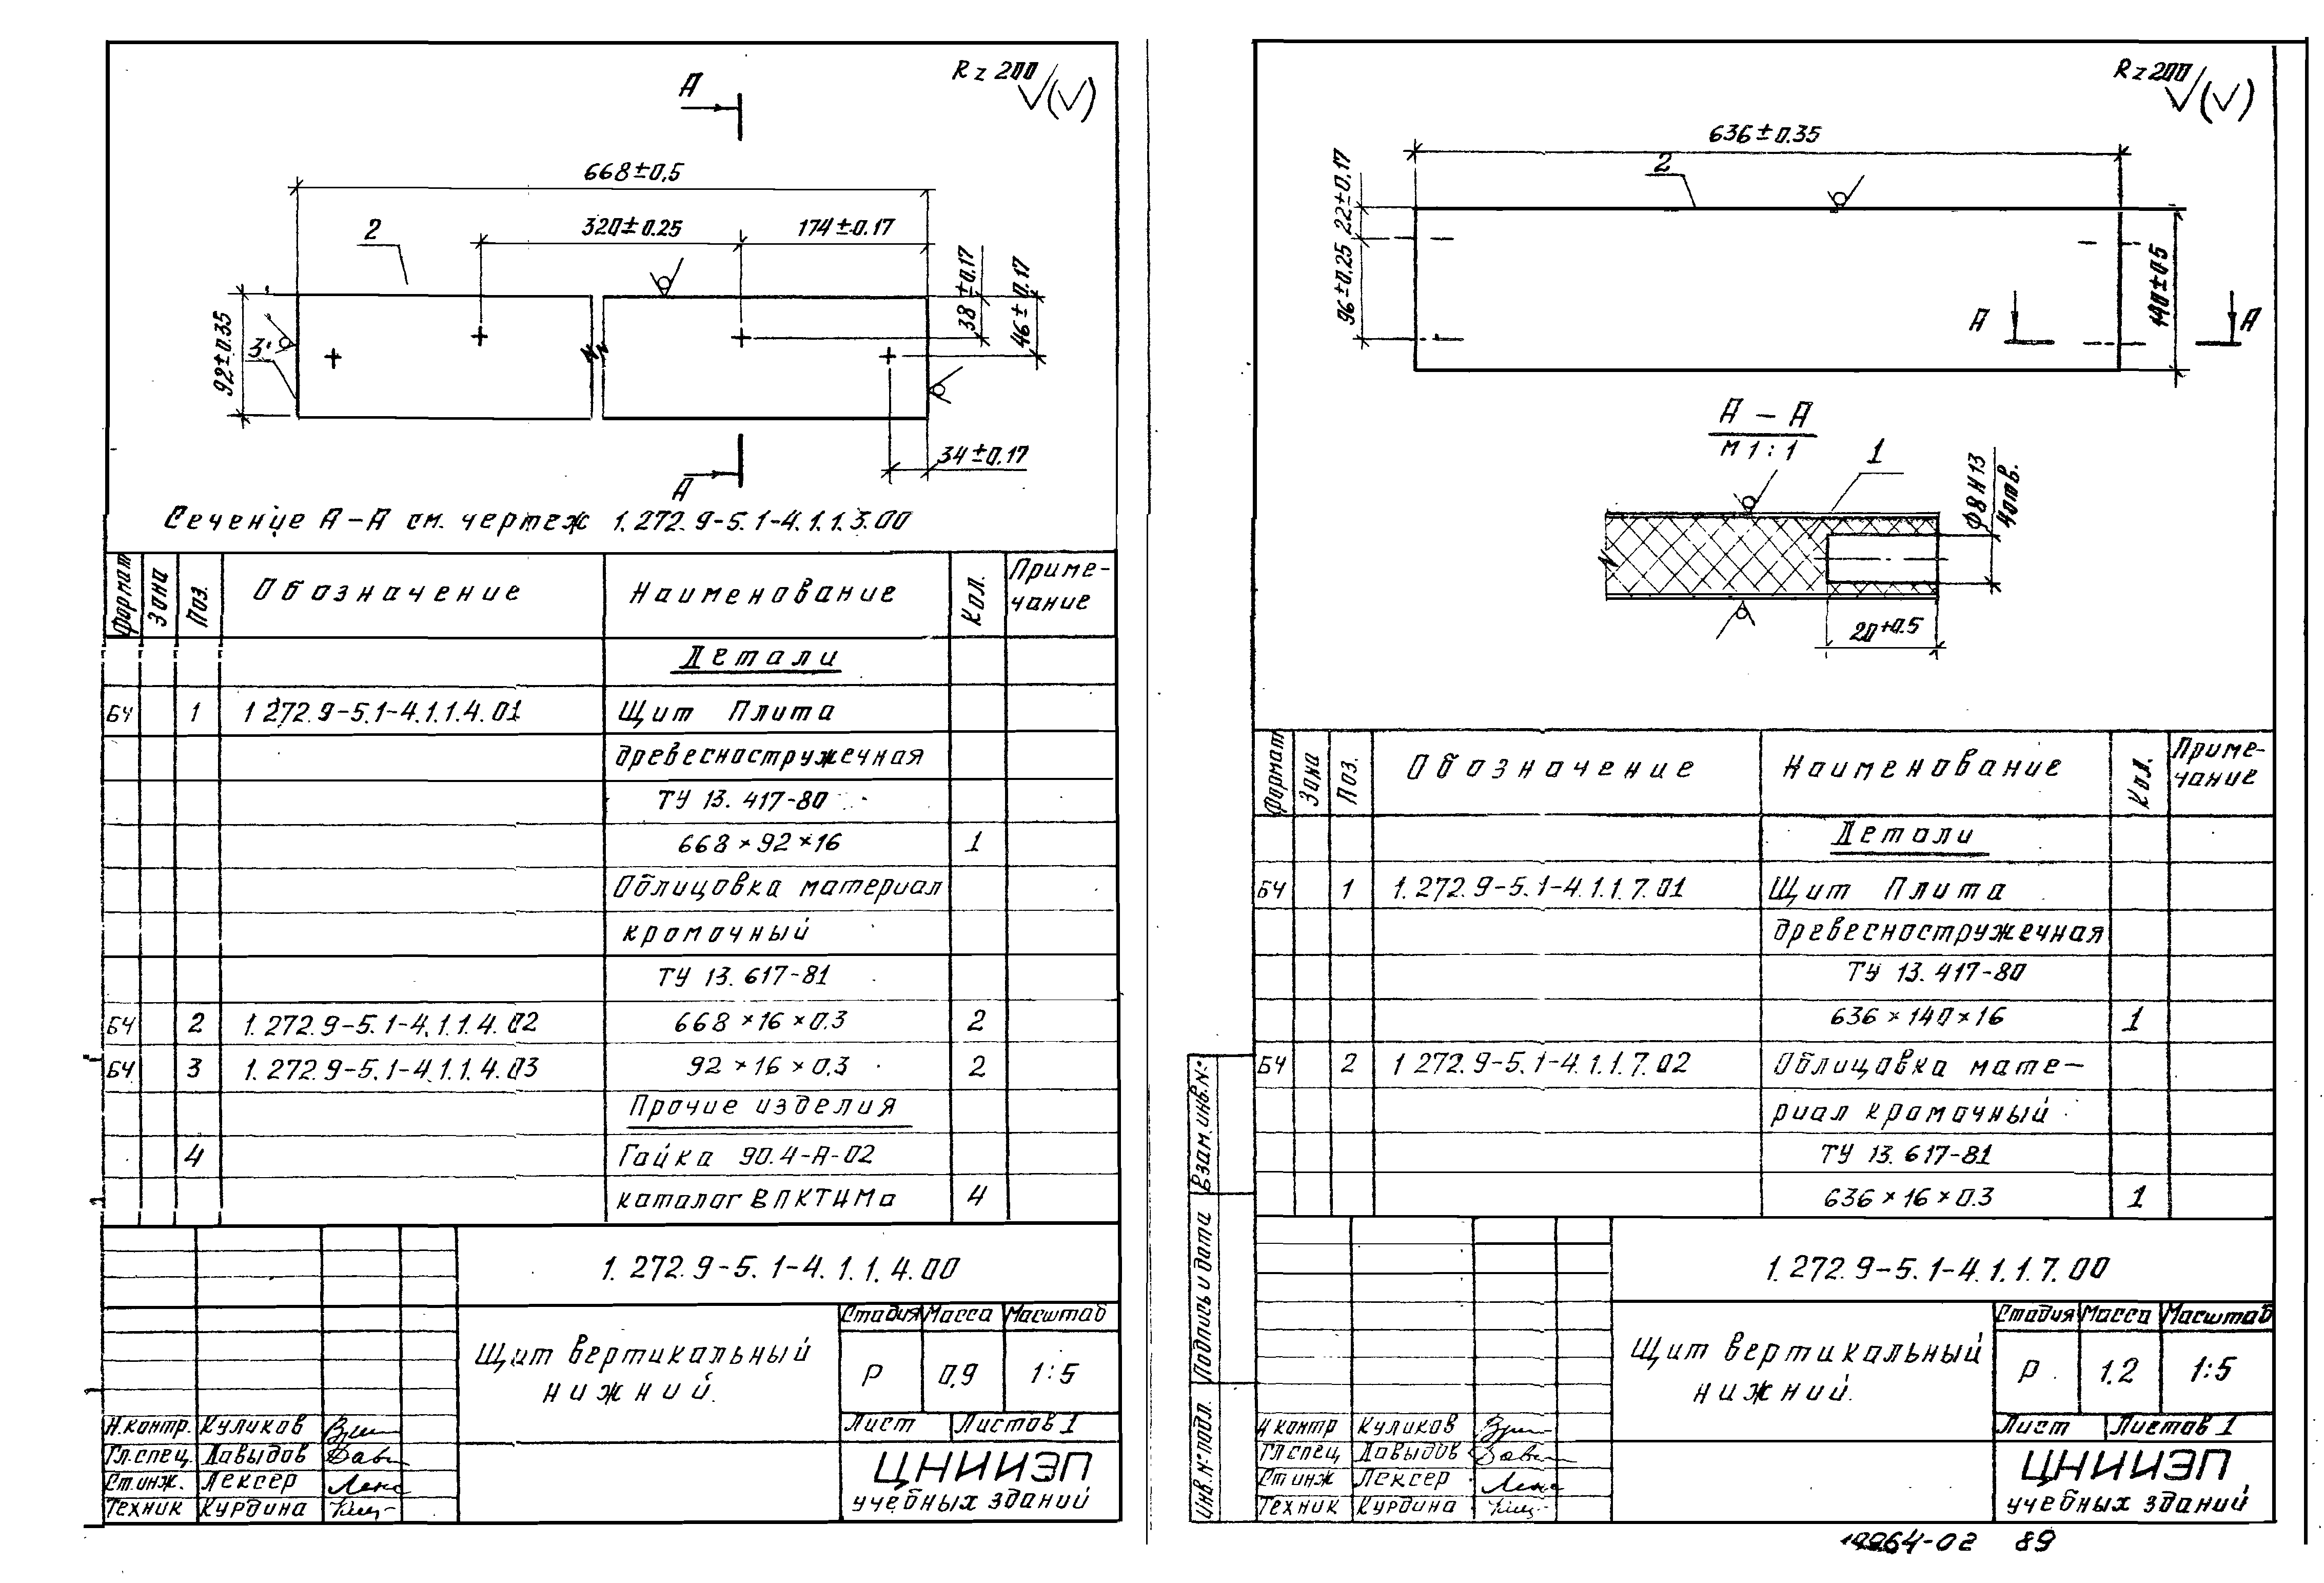 А
Rz 200
668±0,5
2
320±0.25
174±0.17
38±0.17
46±0.17
92±0.35
3
34±0.17
А
Сечение А-А см. чертеж 1.272.9-5.1-4.1.1.3.00
Формат Зона Поз. Обозначение Наименование Кол. Приме-
чание
Детали
БЧ 1 1 272.9-5.1-4.1.1.4.01 Щит Плита
древесностружечная
ТУ 13.417-80
668×92×16 1
Облицовка материал
кромочный
ТУ 13.617-81
БЧ 2 1.272.9-5.1-4.1.1.4.02 668×16×0.3 2
БЧ 3 1.272.9-5.1-4.1.1.4.03 92×16×0.3 2
Прочие изделия
4 Гайка 90.4-А-02
каталог ВПКТИМа 4
1.272.9-5.1-4.1.1.4.00
Щит вертикальный
нижний.
Стадия Масса Масштаб
Р 0,9 1:5
Лист Листов 1
Н.контр. Куликов
Гл.спец. Давыдов
Ст.инж. Лексер
Техник Курдина
ЦНИИЭП
учебных зданий
Rz 200
636±0.35
2
22±0.17
96±0.25
140±0.5
А А
А-А
М 1:1
1
ф8Н13
4отв.
20+0.5
Формат Зона Поз. Обозначение Наименование Кол. Приме-
чание
Детали
БЧ 1 1.272.9-5.1-4.1.1.7.01 Щит Плита
древесностружечная
ТУ 13.417-80
636×140×16 1
БЧ 2 1 272.9-5.1-4.1.1.7.02 Облицовка мате-
риал кромочный
ТУ 13.617-81
636×16×0.3 1
Взам.инв.№
Подпись и дата
Инв.№ подл.
1.272.9-5.1-4.1.1.7.00
Щит вертикальный
нижний.
Стадия Масса Масштаб
Р 1.2 1:5
Лист Листов 1
Н контр Куликов
Гл спец Давыдов
Ст инж Лексер
Техник Курдина
ЦНИИЭП
учебных зданий
89